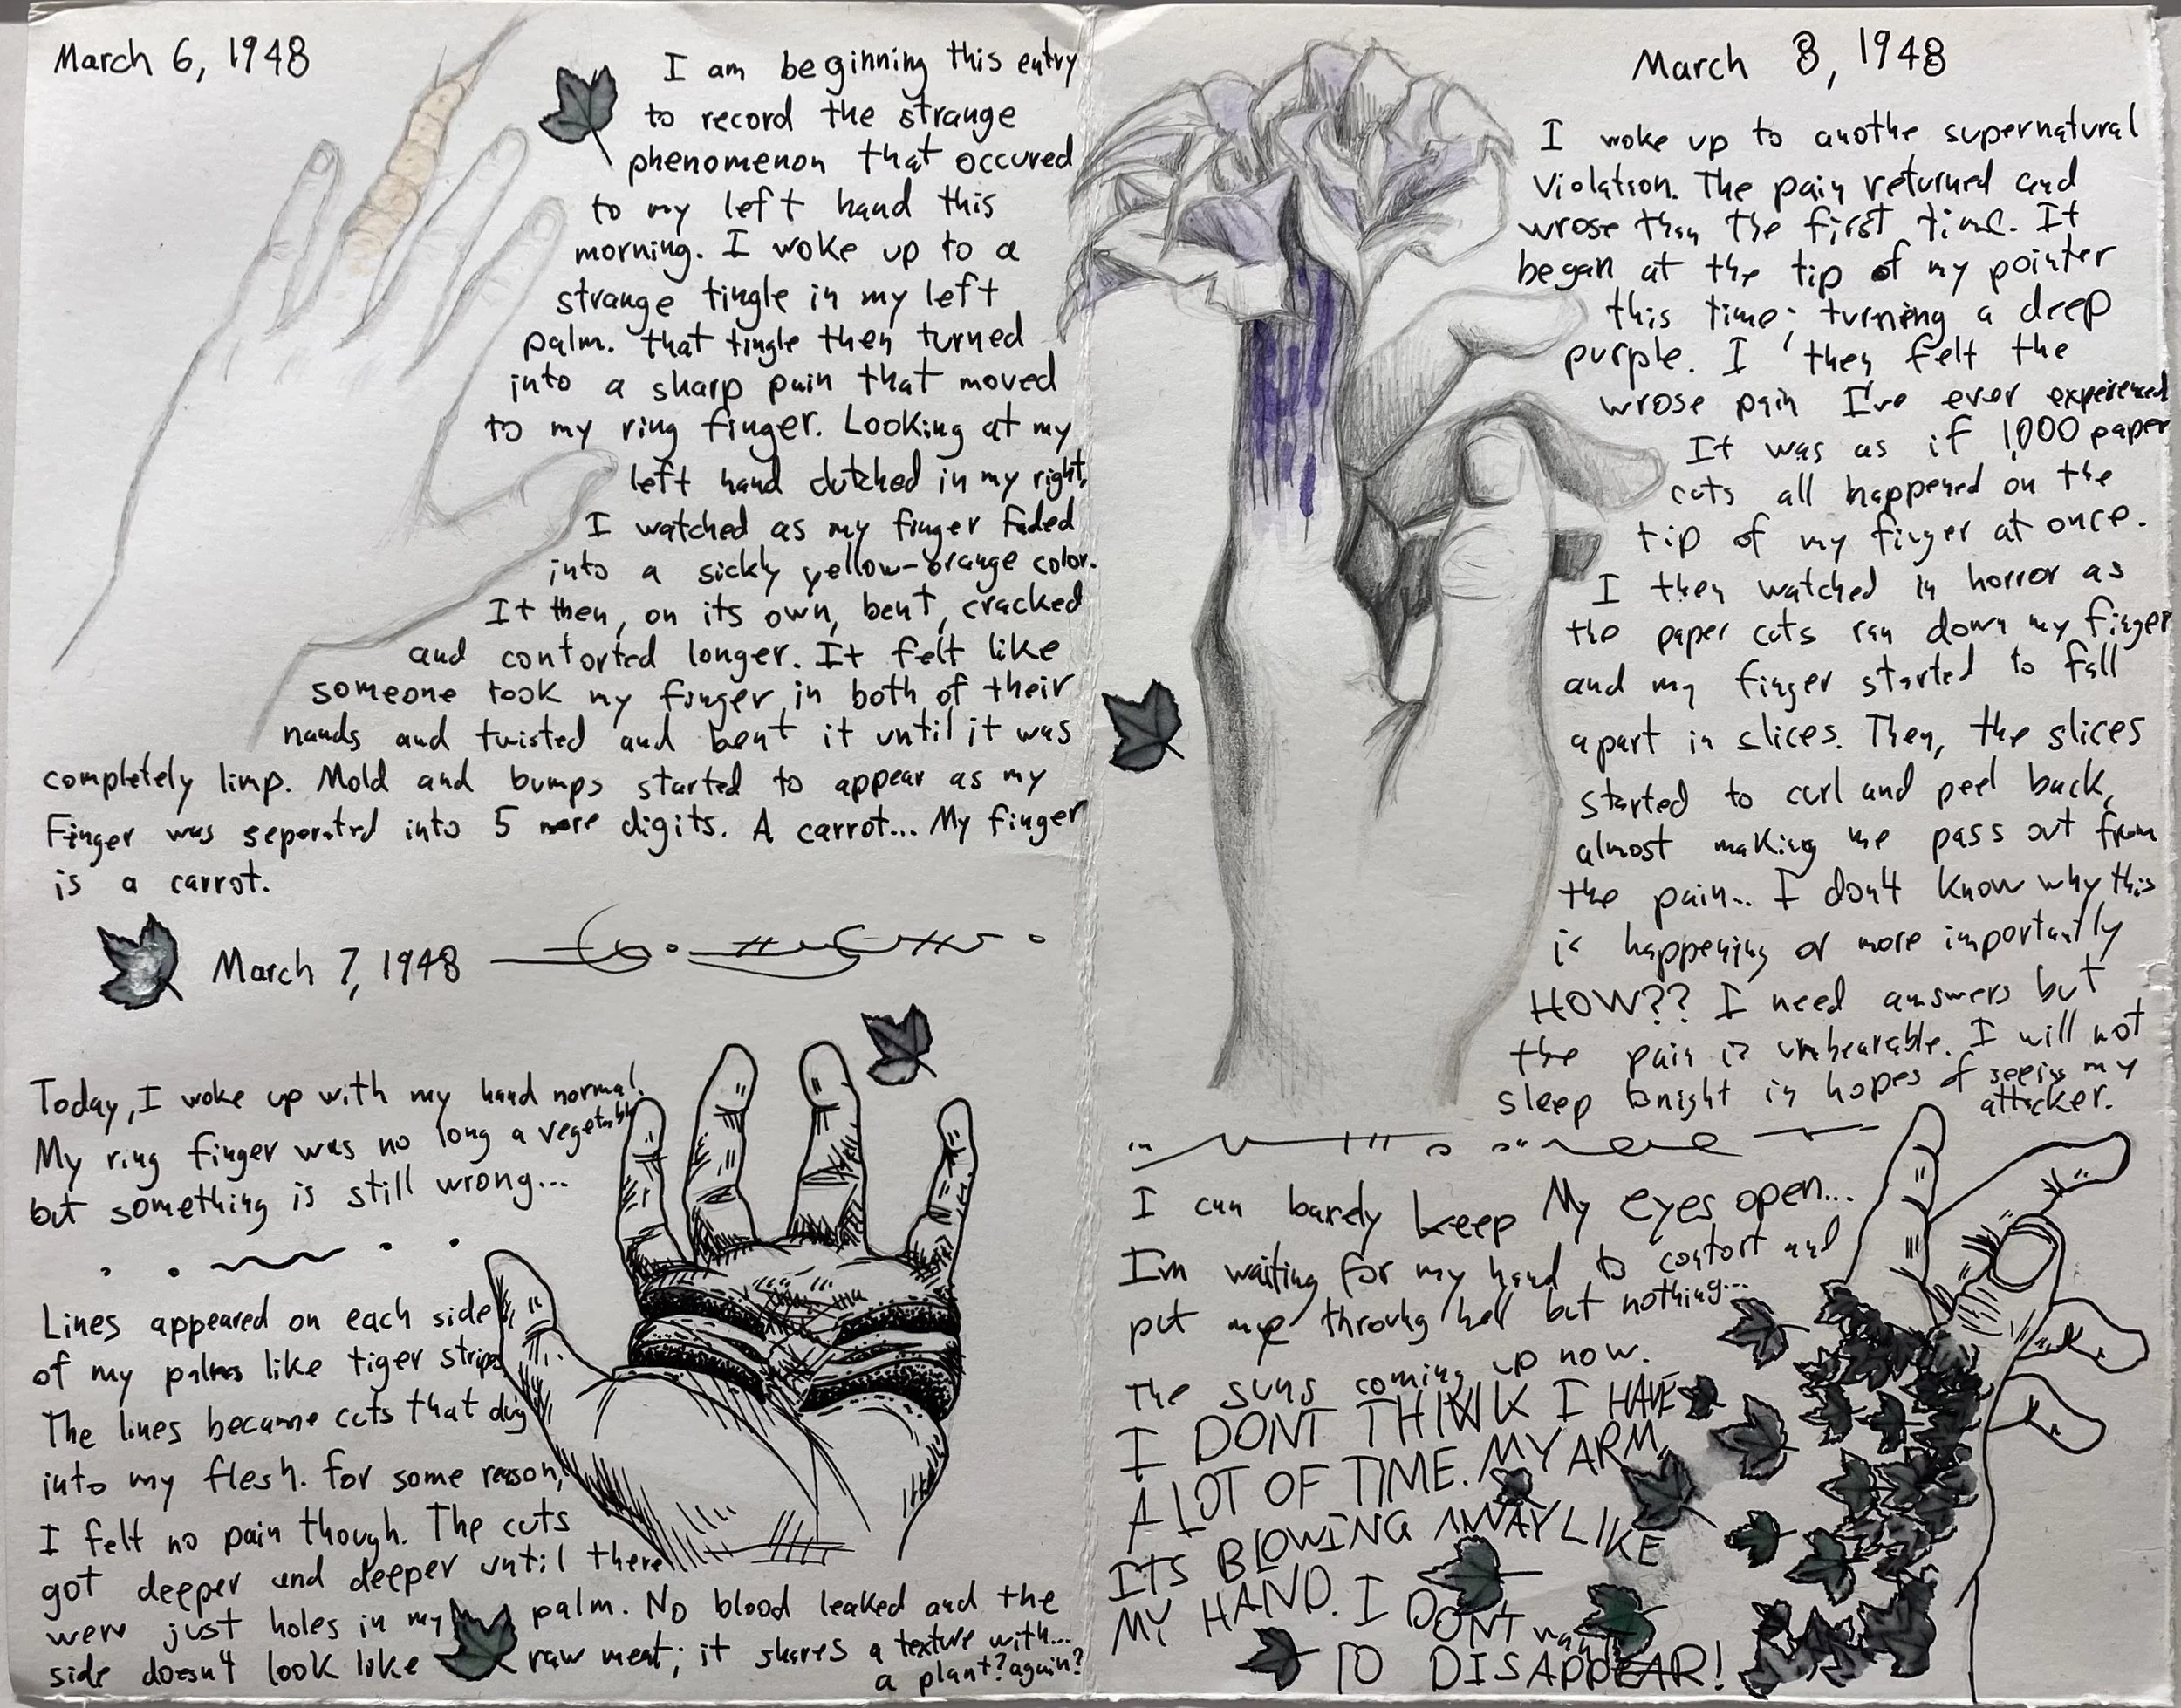 March 6, 1948
I am beginning this entry
to record the strange
phenomenon that occured
to my left hand this
morning. I woke up to a
strange tingle in my left
palm. that tingle then turned
into a sharp pain that moved
to my ring finger. Looking at my
left hand clutched in my right,
I watched as my finger faded
into a sickly yellow-orange color.
It then, on its own, bent, cracked
and contorted longer. It felt like
someone took my finger in both of their
hands and twisted and bent it until it was
completely limp. Mold and bumps started to appear as my
Finger was seperated into 5 more digits. A carrot... My finger
is a carrot.
March 7, 1948
Today, I woke up with my hand normal.
My ring finger was no long a vegetable
but something is still wrong...
Lines appeared on each side
of my palms like tiger strips
The lines became cuts that dug
into my flesh. for some reason,
I felt no pain though. The cuts
got deeper and deeper until there
were just holes in my palm. No blood leaked and the
side doesn't look like raw meat; it shares a texture with...
a plant? again?
March 8, 1948
I woke up to anothe supernatural
Violation. The pain returned and
wrose than the first time. It
began at the tip of my pointer
this time; turning a deep
purple. I then felt the
wrose pain I've ever experienced
It was as if 1,000 paper
cuts all happened on the
tip of my finger at once.
I then watched in horror as
the paper cuts ran down my finger
and my finger started to fall
apart in slices. Then, the slices
started to curl and peel back,
almost making me pass out from
the pain.. I don't know why this
is happening or more importantly
HOW?? I need answers but
the pain is unbearable. I will not
sleep tonight in hopes of seeing my
attacker.
I can barely keep My eyes open...
I'm waiting for my hand to contort and
put me throuhg hell but nothing...
The suns coming up now.
I DONT THINK I HAVE
A LOT OF TIME. MY ARM,
ITS BLOWING AWAY LIKE
MY HAND. I DONT want
TO DISAPPEAR!